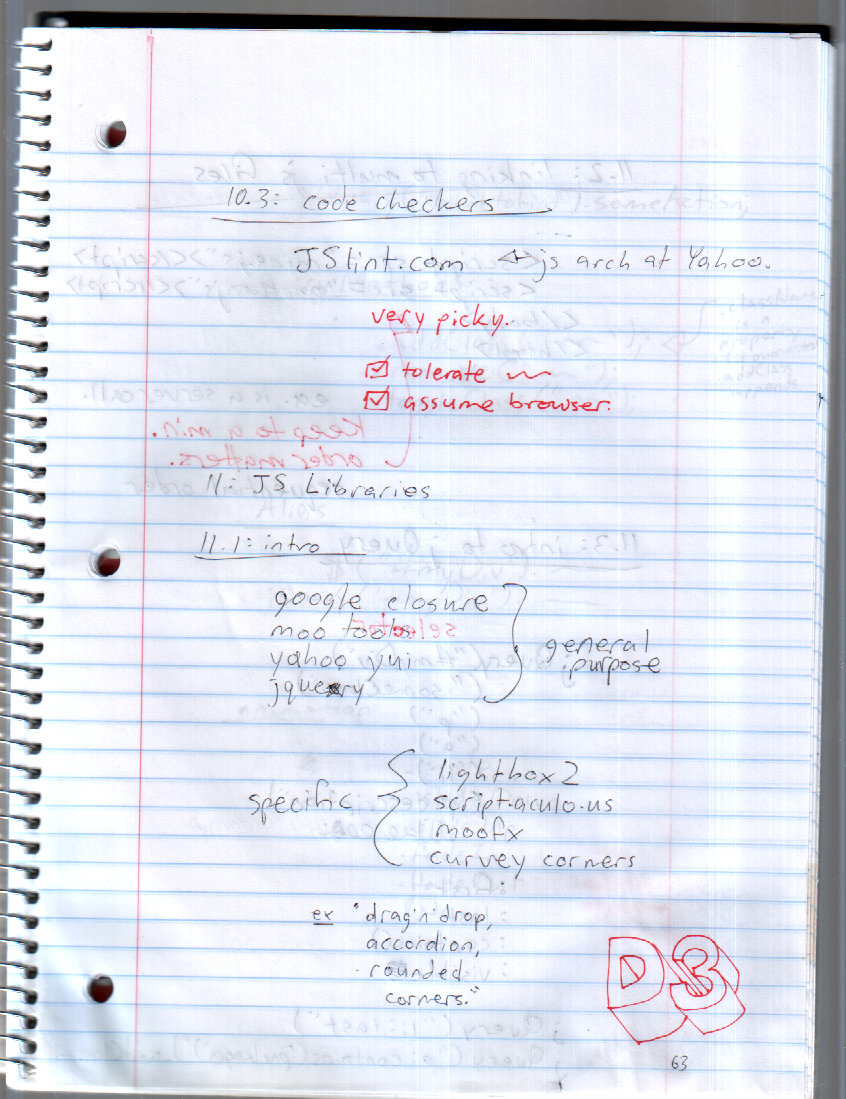 10.3: code checkers
JSlint.com ← js arch at Yahoo.
very picky.
☑ tolerate
☑ assume browser.
11: JS Libraries
11.1: intro
google closure
moo tools
yahoo yui
jquery
general
purpose
specific
lightbox2
script.aculo.us
moofx
curvey corners
ex "drag'n'drop,
accordion,
rounded
corners."
D3
63